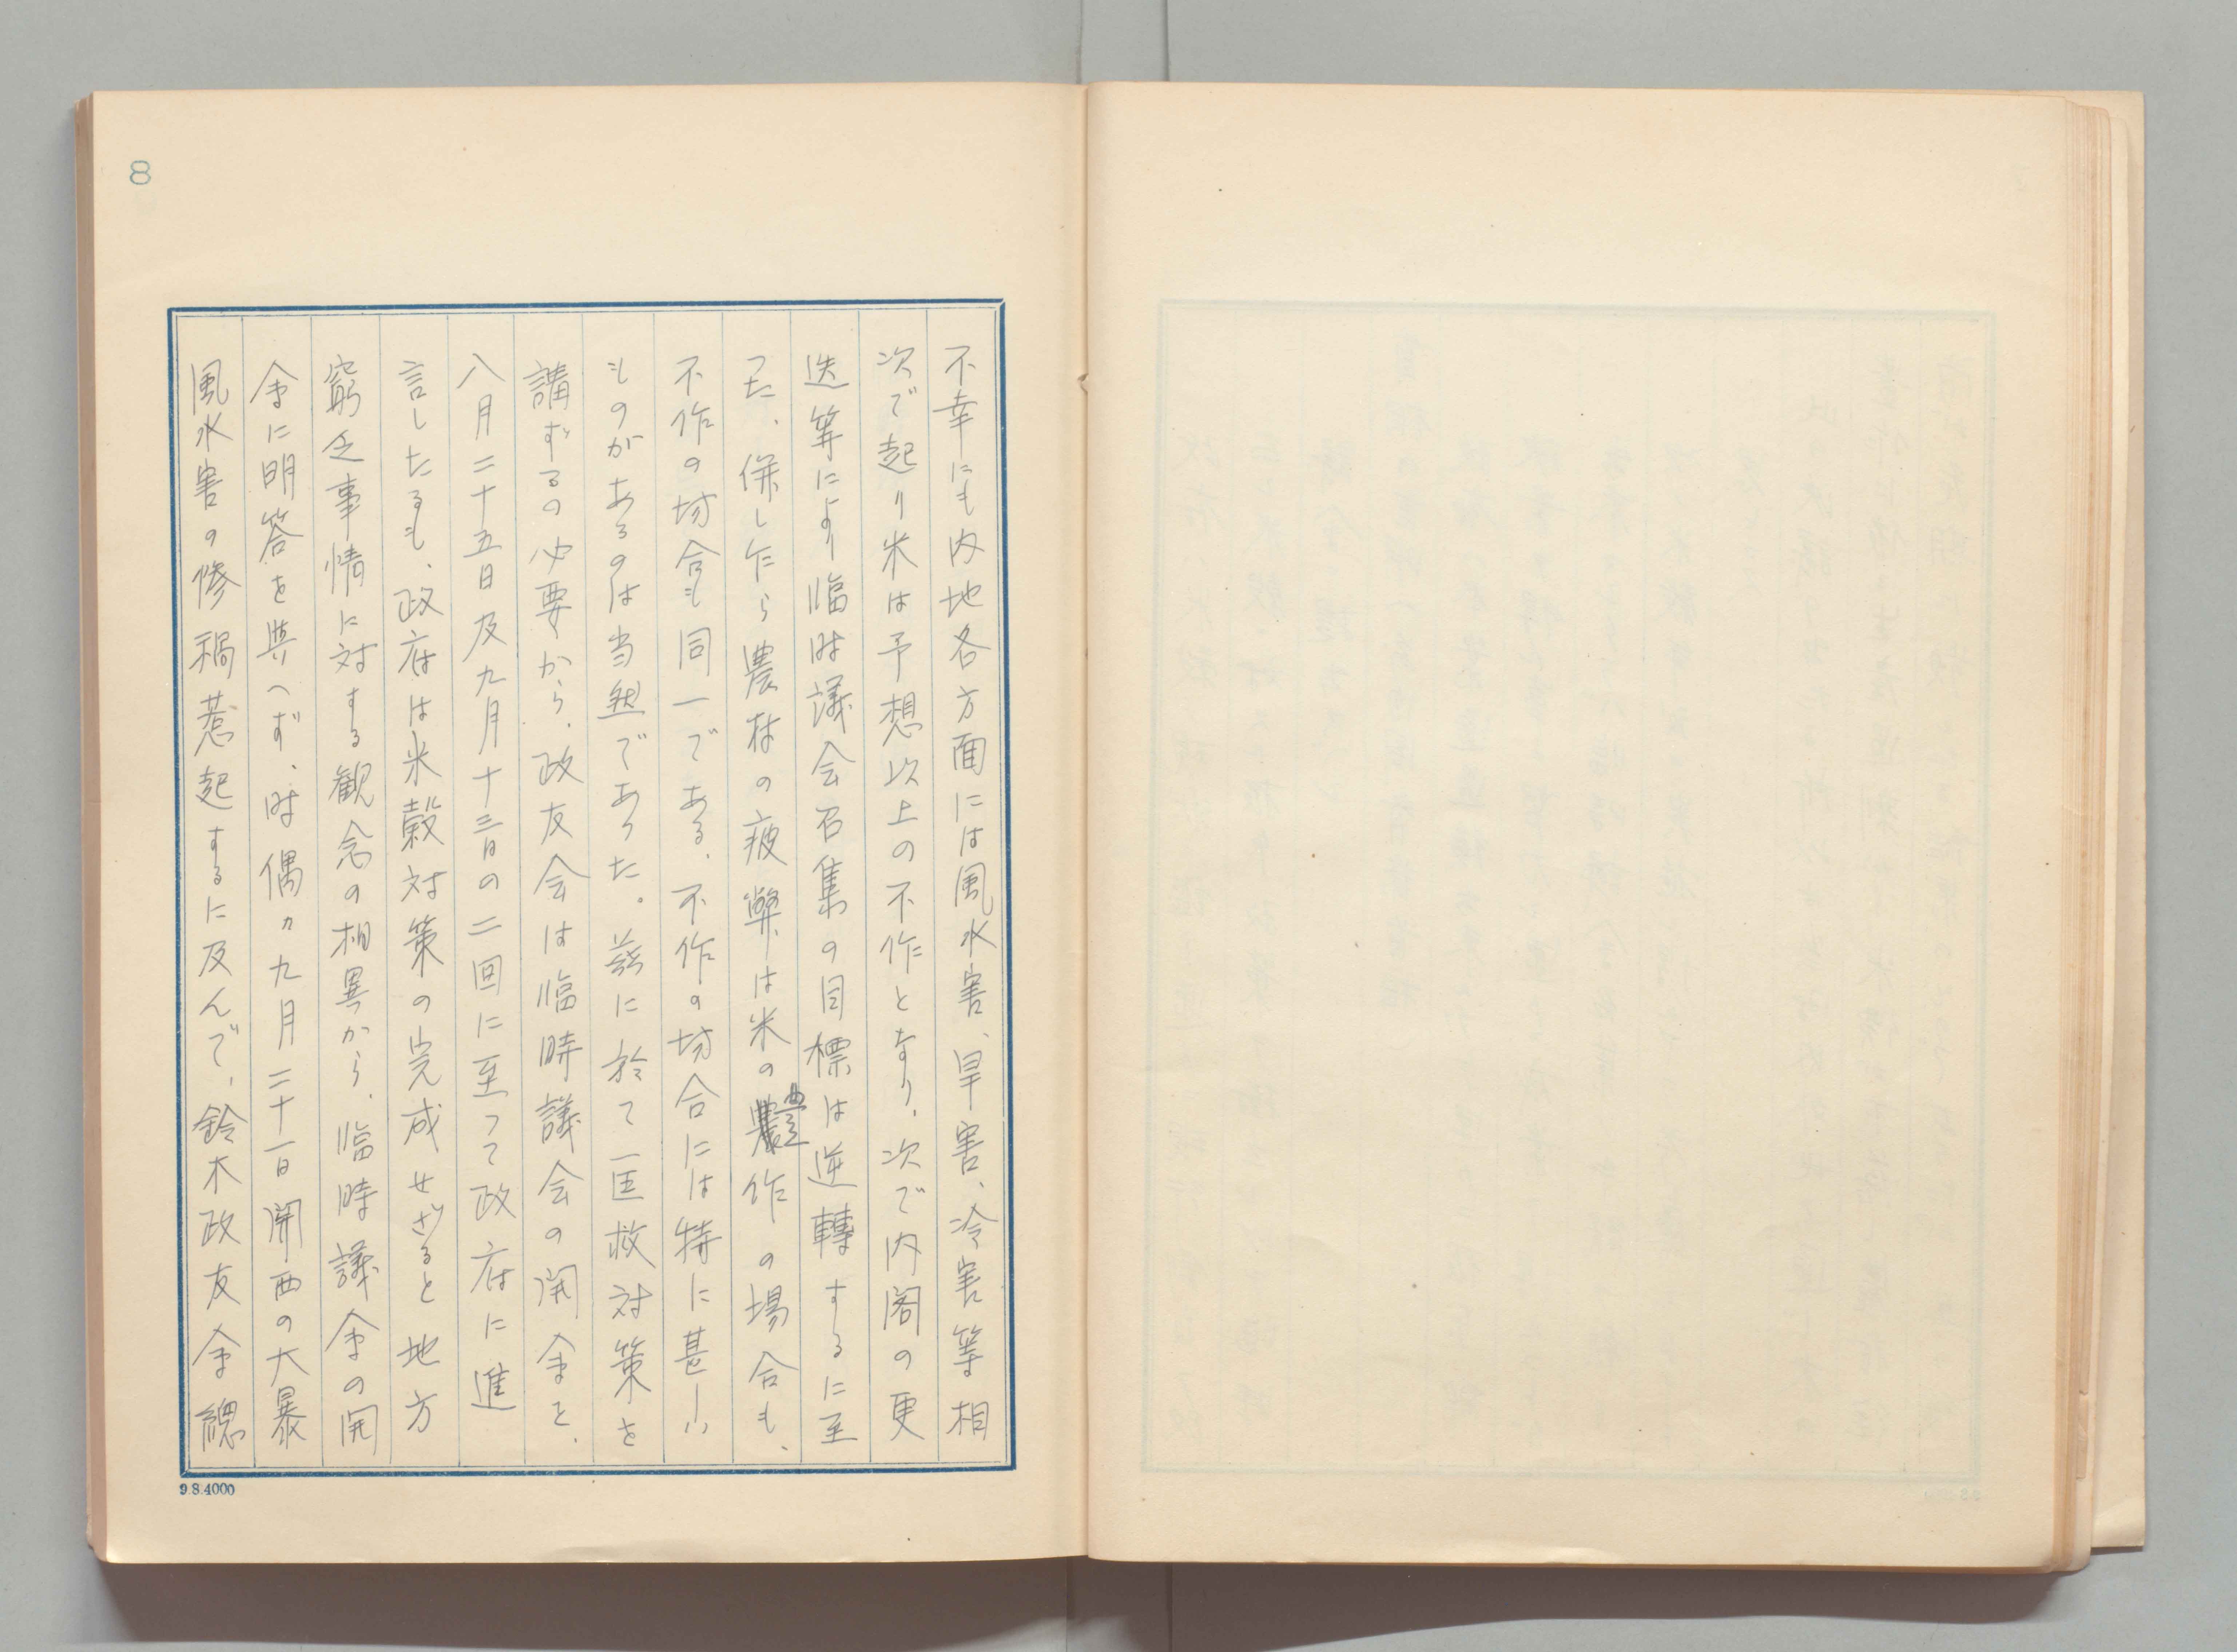 8
不幸にも内地各方面には風水害、旱害、冷害等相
次で起り米は予想以上の不作となり、次で内閣の更
迭等により臨時議会召集の目標は逆轉するに至
つた、併し乍ら農村の疲弊は米の豊作の場合も、
不作の場合も同一である、不作の場合には特に甚しい
ものがあるのは当然であつた。茲に於て一匡救対策を
講ずるの必要から、政友会は臨時議会の開会を、
八月二十五日及九月十三日の二回に至つて政府に進
言したるも、政府は米穀対策の完成せざると地方
窮乏事情に対する観念の相異から、臨時議会の開
会に明答を與へず、時偶々九月二十一日関西の大暴
風水害の惨禍惹起するに及んで、鈴木政友会總
9 8.4000